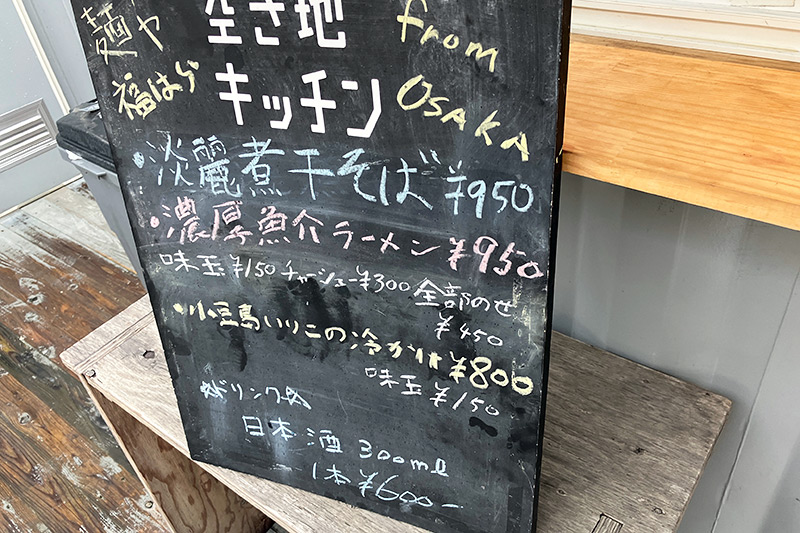 麺や
福はら
空き地
キッチン
from
OSAKA
・淡麗煮干そば ¥950
・濃厚魚介ラーメン ¥950
味玉¥150 チャーシュー¥300 全部のせ
¥450
・小豆島いりこの冷かけ ¥800
味玉 ¥150
ドリンク
日本酒 300ml
1本 ¥600-